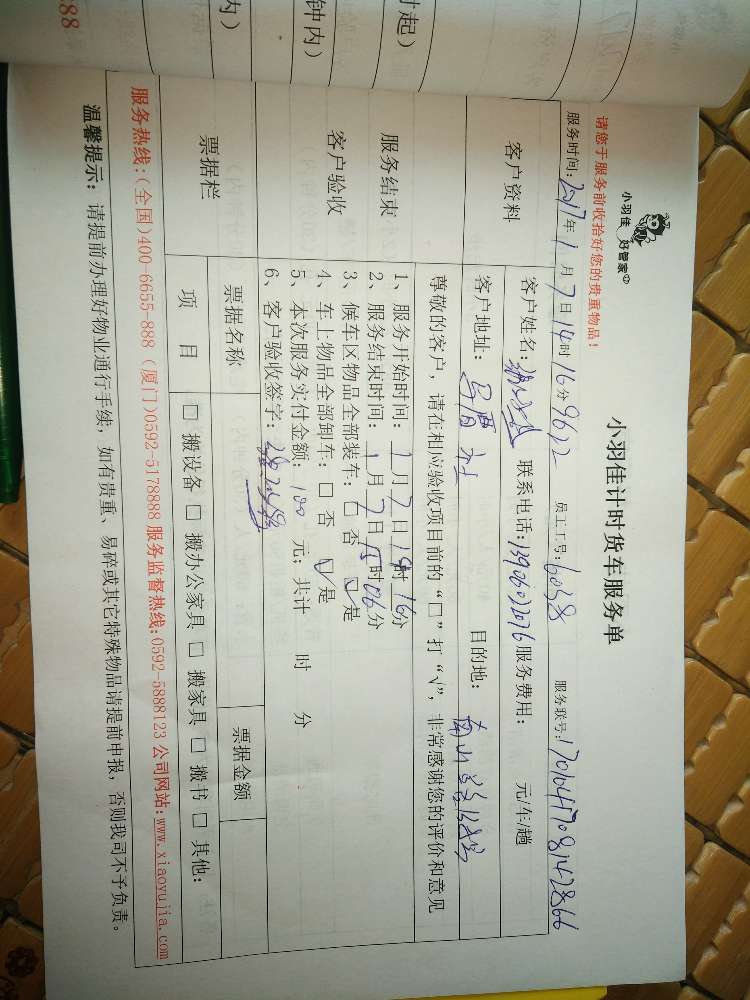 88
内)
钟内)
时起)
小羽佳 好管家
小羽佳计时货车服务单
请您于服务前收拾好您的贵重物品!
服务时间:2017年1月7日14时16分9612 员工工号:6038 服务联号:
客户资料
客户姓名: 联系电话:13906022076 服务费用: 元/车/趟
客户地址: 社 目的地: 南山
服务结束
客户验收
尊敬的客户,请在相应验收项目前的“□”打“√”,非常感谢您的评价和意见
1、服务开始时间:1月7日14时16分
2、服务结束时间:1月7日15时06分
3、候车区物品全部装车:□ 否 ☑ 是
4、车上物品全部卸车:□ 否 ☑ 是
5、本次服务实付金额:100元;共计 时 分
6、客户验收签字:
票据栏
票据名称 票据金额
项目 □ 搬设备 □ 搬办公家具 □ 搬家具 □ 搬书 □ 其他:
服务热线:(全国)400-6655-888 (厦门)0592-5178888 服务监督热线:0592-5888123 公司网站:www.xiaoyujia.com
温馨提示:请提前办理好物业通行手续,如有贵重、易碎或其它特殊物品请提前申报,否则我司不予负责。